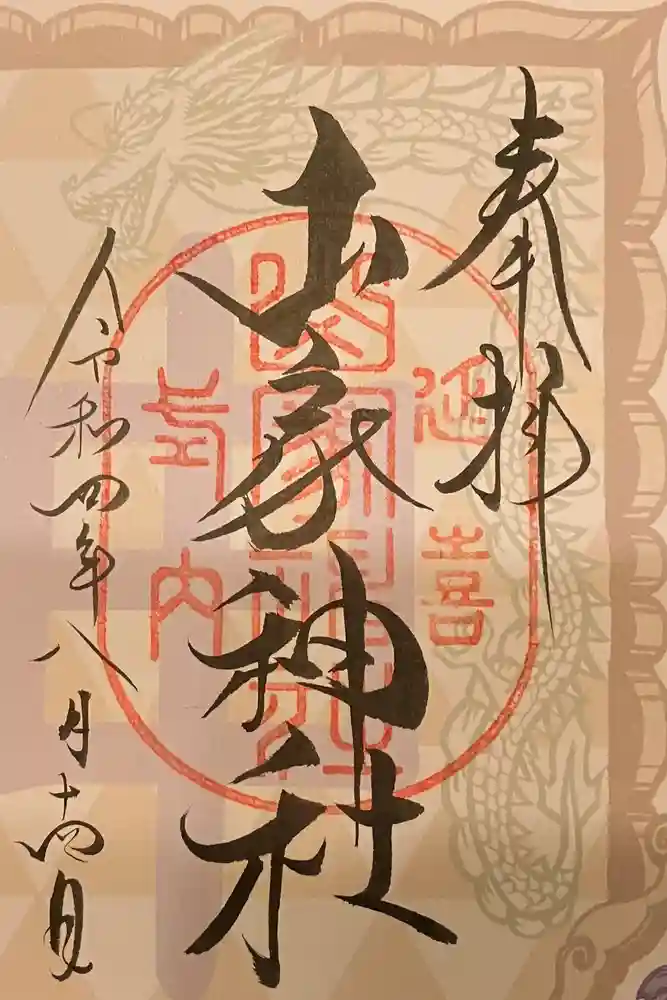 奉拝
延喜
山家神社
式内
令和四年八月十四日